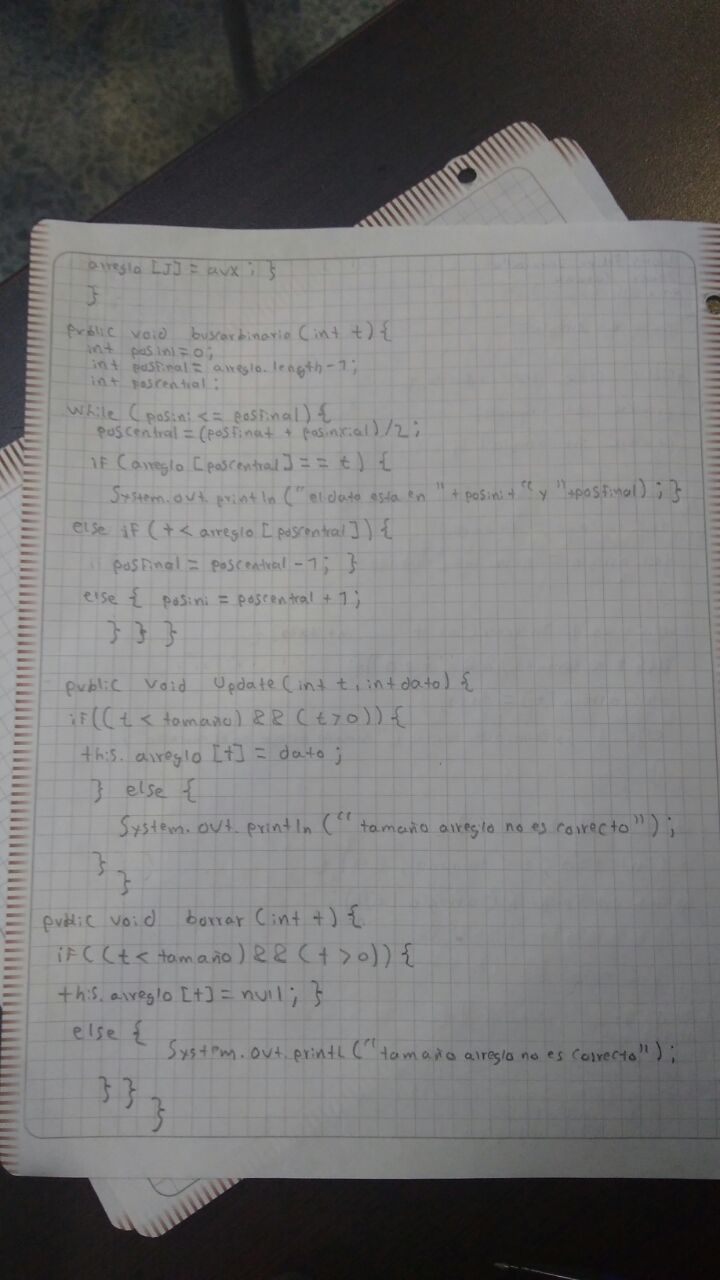 arreglo [J] = aux ; }
}
public void buscarbinario (int t) {
int posini = 0;
int posfinal = arreglo.length - 1;
int poscentral ;
while (posini <= posfinal) {
poscentral = (posfinal + posinicial) / 2 ;
if (arreglo [poscentral] == t) {
System.out.println ("el dato esta en " + posini + " y " + posfinal) ; }
else if (t < arreglo [poscentral]) {
posfinal = poscentral - 1; }
else { posini = poscentral + 1;
} } }
public void Update (int t, int dato) {
if ((t < tamaño) && (t > 0)) {
this. arreglo [t] = dato ;
} else {
System.out.println (" tamaño arreglo no es correcto") ;
}
}
public void borrar (int t) {
if ((t < tamaño) && (t > 0)) {
this. arreglo [t] = null ; }
else {
System.out.printl ("tamaño arreglo no es correcto") ;
} }
}